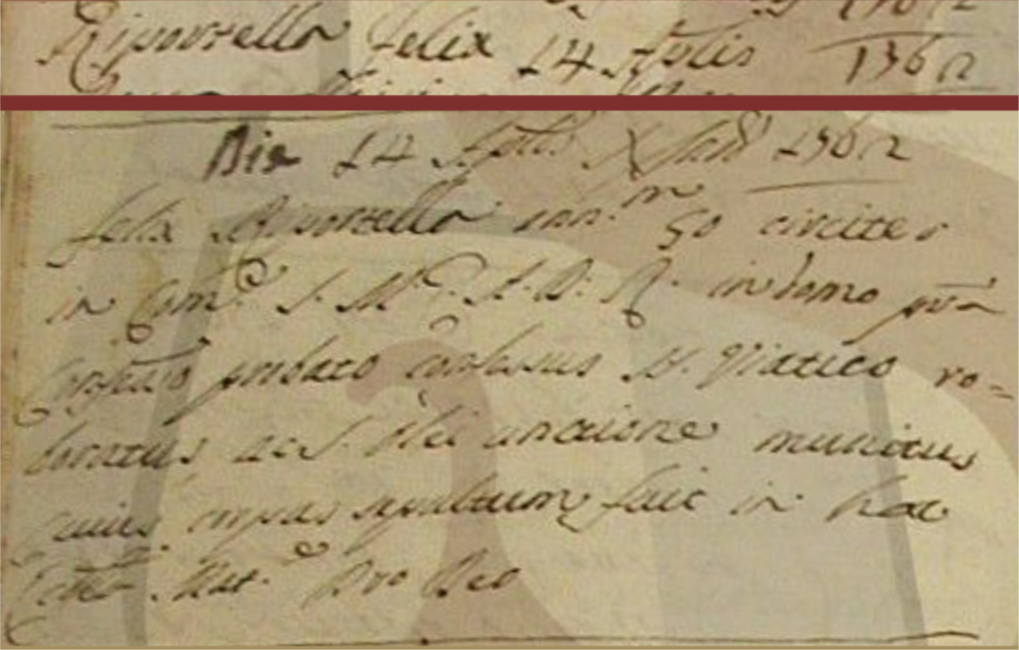 Riportella Felix 14 Aplis 1762
Die 14 Aplis X Ind: 1762
Felix Riportella ann.m 50 circiter
in Com.e S. M. E. A. D. R. in domo pp.a
Confess.o probato confessus SS. Viatico ro=
boratus ac S. Olei unctione munitus
cuius corpus sepultum fuit in hac
Mat.e Pro Deo